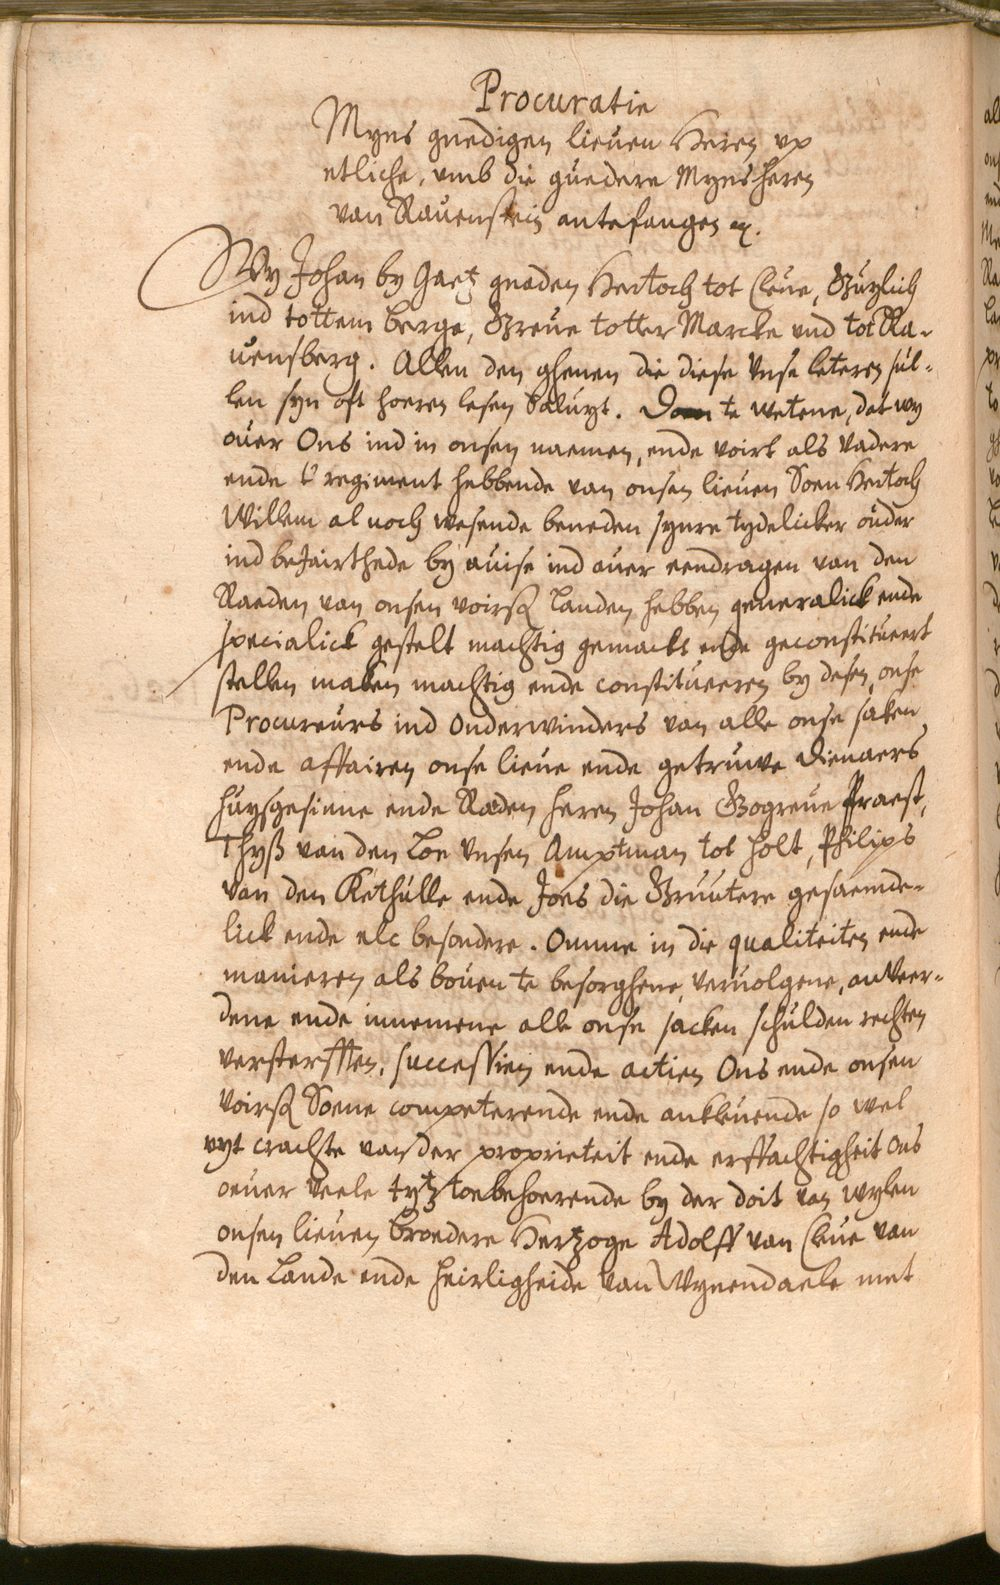 Procuratie
Myns gnedigen lieuen Heren vp
etliche, vmb die guedere Mynsheren
van Rauenstein antefangen etc.
Wy Johan by Gaetz gnaden Hertoch tot Cleue, Guylich
ind tottem Berge, Greue totter Marcke vnd tot Ra-
uensberg. Allen den ghenen die diese vnse letteren sul-
len syn oft hoeren lesen Saluyt. Doen te wetene, dat wy
ouer Ons ind in onsen naemen, ende voirt als vadere
ende t' regiment hebbende van onsen lieuen Soen Hertoch
Willem al noch wesende beneden synre tydelicker ouder
ind bejairthede by auise ind ouer eendragen van den
Raeden van onsen voirß Landen hebben generalick ende
specialick gestelt machtig gemackt ende geconstitueert
stellen maken machtig ende constitueeren by desen, onse
Procureurs ind Onderwinders van alle onse saken
ende affairen onse lieue ende getruwe dienaers
huysgesinne ende Raden heren Johan Gogreue Praest,
Thyß van den Loe vnsen Amptman tot Holt, Philips
van den Kethulle ende Joes die Gruutere gesaemde-
lick ende elc besondere. Omme in die qualiteiten ende
manieren als bouen te besorghene, veruolgene, anveer-
dene ende innemene alle onse sacken schulden rechten
versterfften, successien ende actien Ons ende onsen
voirß Soene competerende ende ankleuende so wel
vyt crachte van der proprieteit ende erffachtigheit ons
oeuer veele tytz toebehoerende by der doit van wylen
onsen lieuen broedere Hertzoge Adolff van Cleue van
den Lande ende heirligheide van Wynendaele met